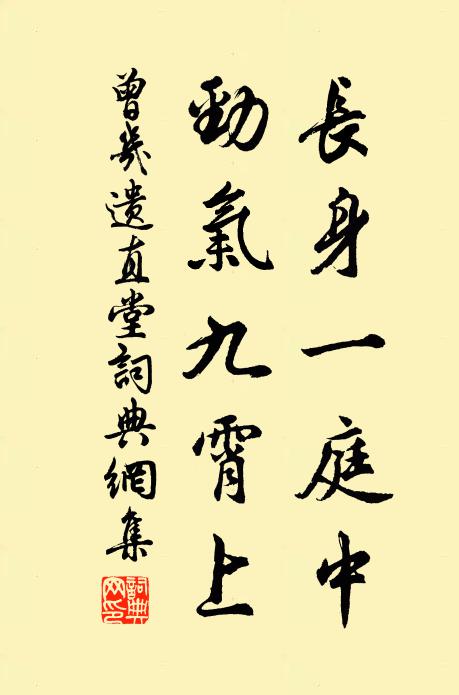 長身一庭中
勁氣九霄上
曾幾遺直堂詞典網集
詞典网印